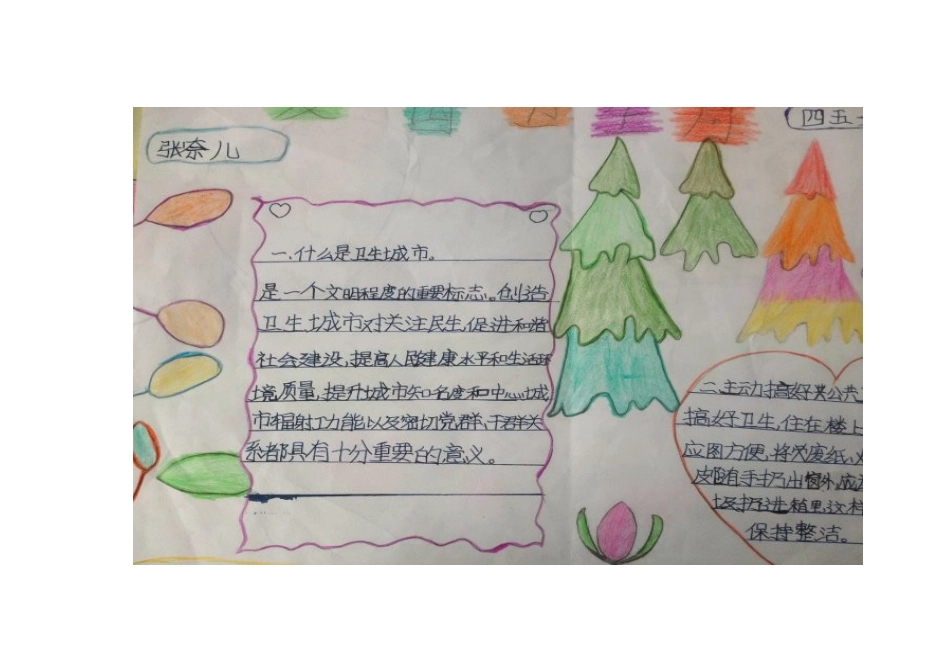 张奈儿
四五
一.什么是卫生城市。
是一个文明程度的重要标志。创造
卫生城市对关注民生,促进和谐
社会建设,提高人居健康水平和生活环
境质量,提升城市知名度和中心城
市辐射功能以及密切党群、干群关
系都具有十分重要的意义。
二.主动搞好公共
搞好卫生,住在楼上
应图方便,将废纸、
皮随手扔出窗外,应
圾扔进箱里,这样
保持整洁。